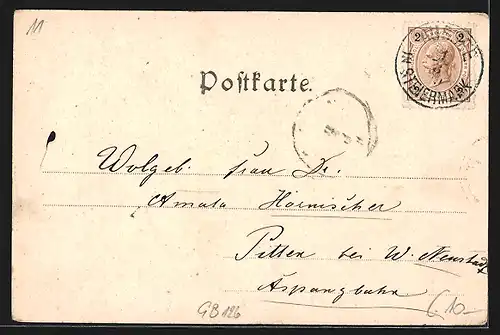 11
2 2
IN STEIERMARK
Postkarte.
Wolgeb. Frau Dr.
Amata Hörnischer
Pitten bei W. Neustadt
Aspangbahn
GB126
(10-